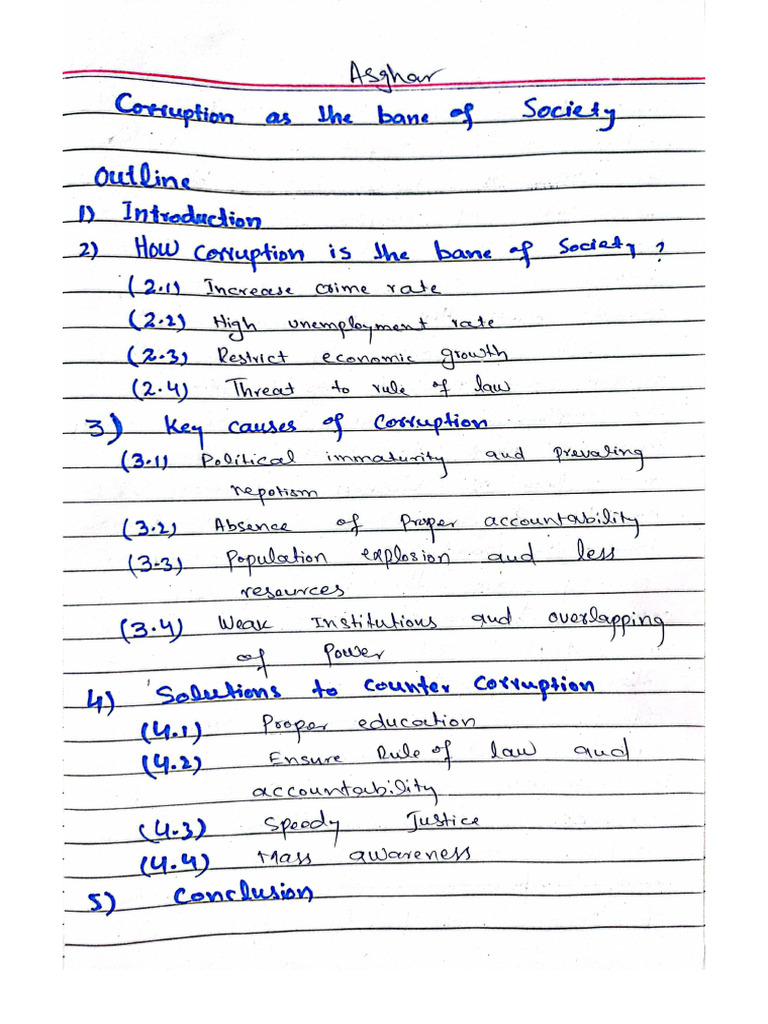 Asghar
Corruption as the bane of Society
Outline
1) Introduction
2) How corruption is the bane of Society?
(2.1) Increase crime rate
(2.2) High unemployment rate
(2.3) Restrict economic growth
(2.4) Threat to rule of law
3) Key causes of Corruption
(3.1) Political immaturity and prevaling
nepotism
(3.2) Absence of Proper accountability
(3.3) Population explosion and less
resources
(3.4) Weak Institutions and overlapping
of Power
4) Solutions to Counter Corruption
(4.1) Proper education
(4.2) Ensure Rule of law and
accountability
(4.3) Speedy Justice
(4.4) Mass awareness
5) Conclusion